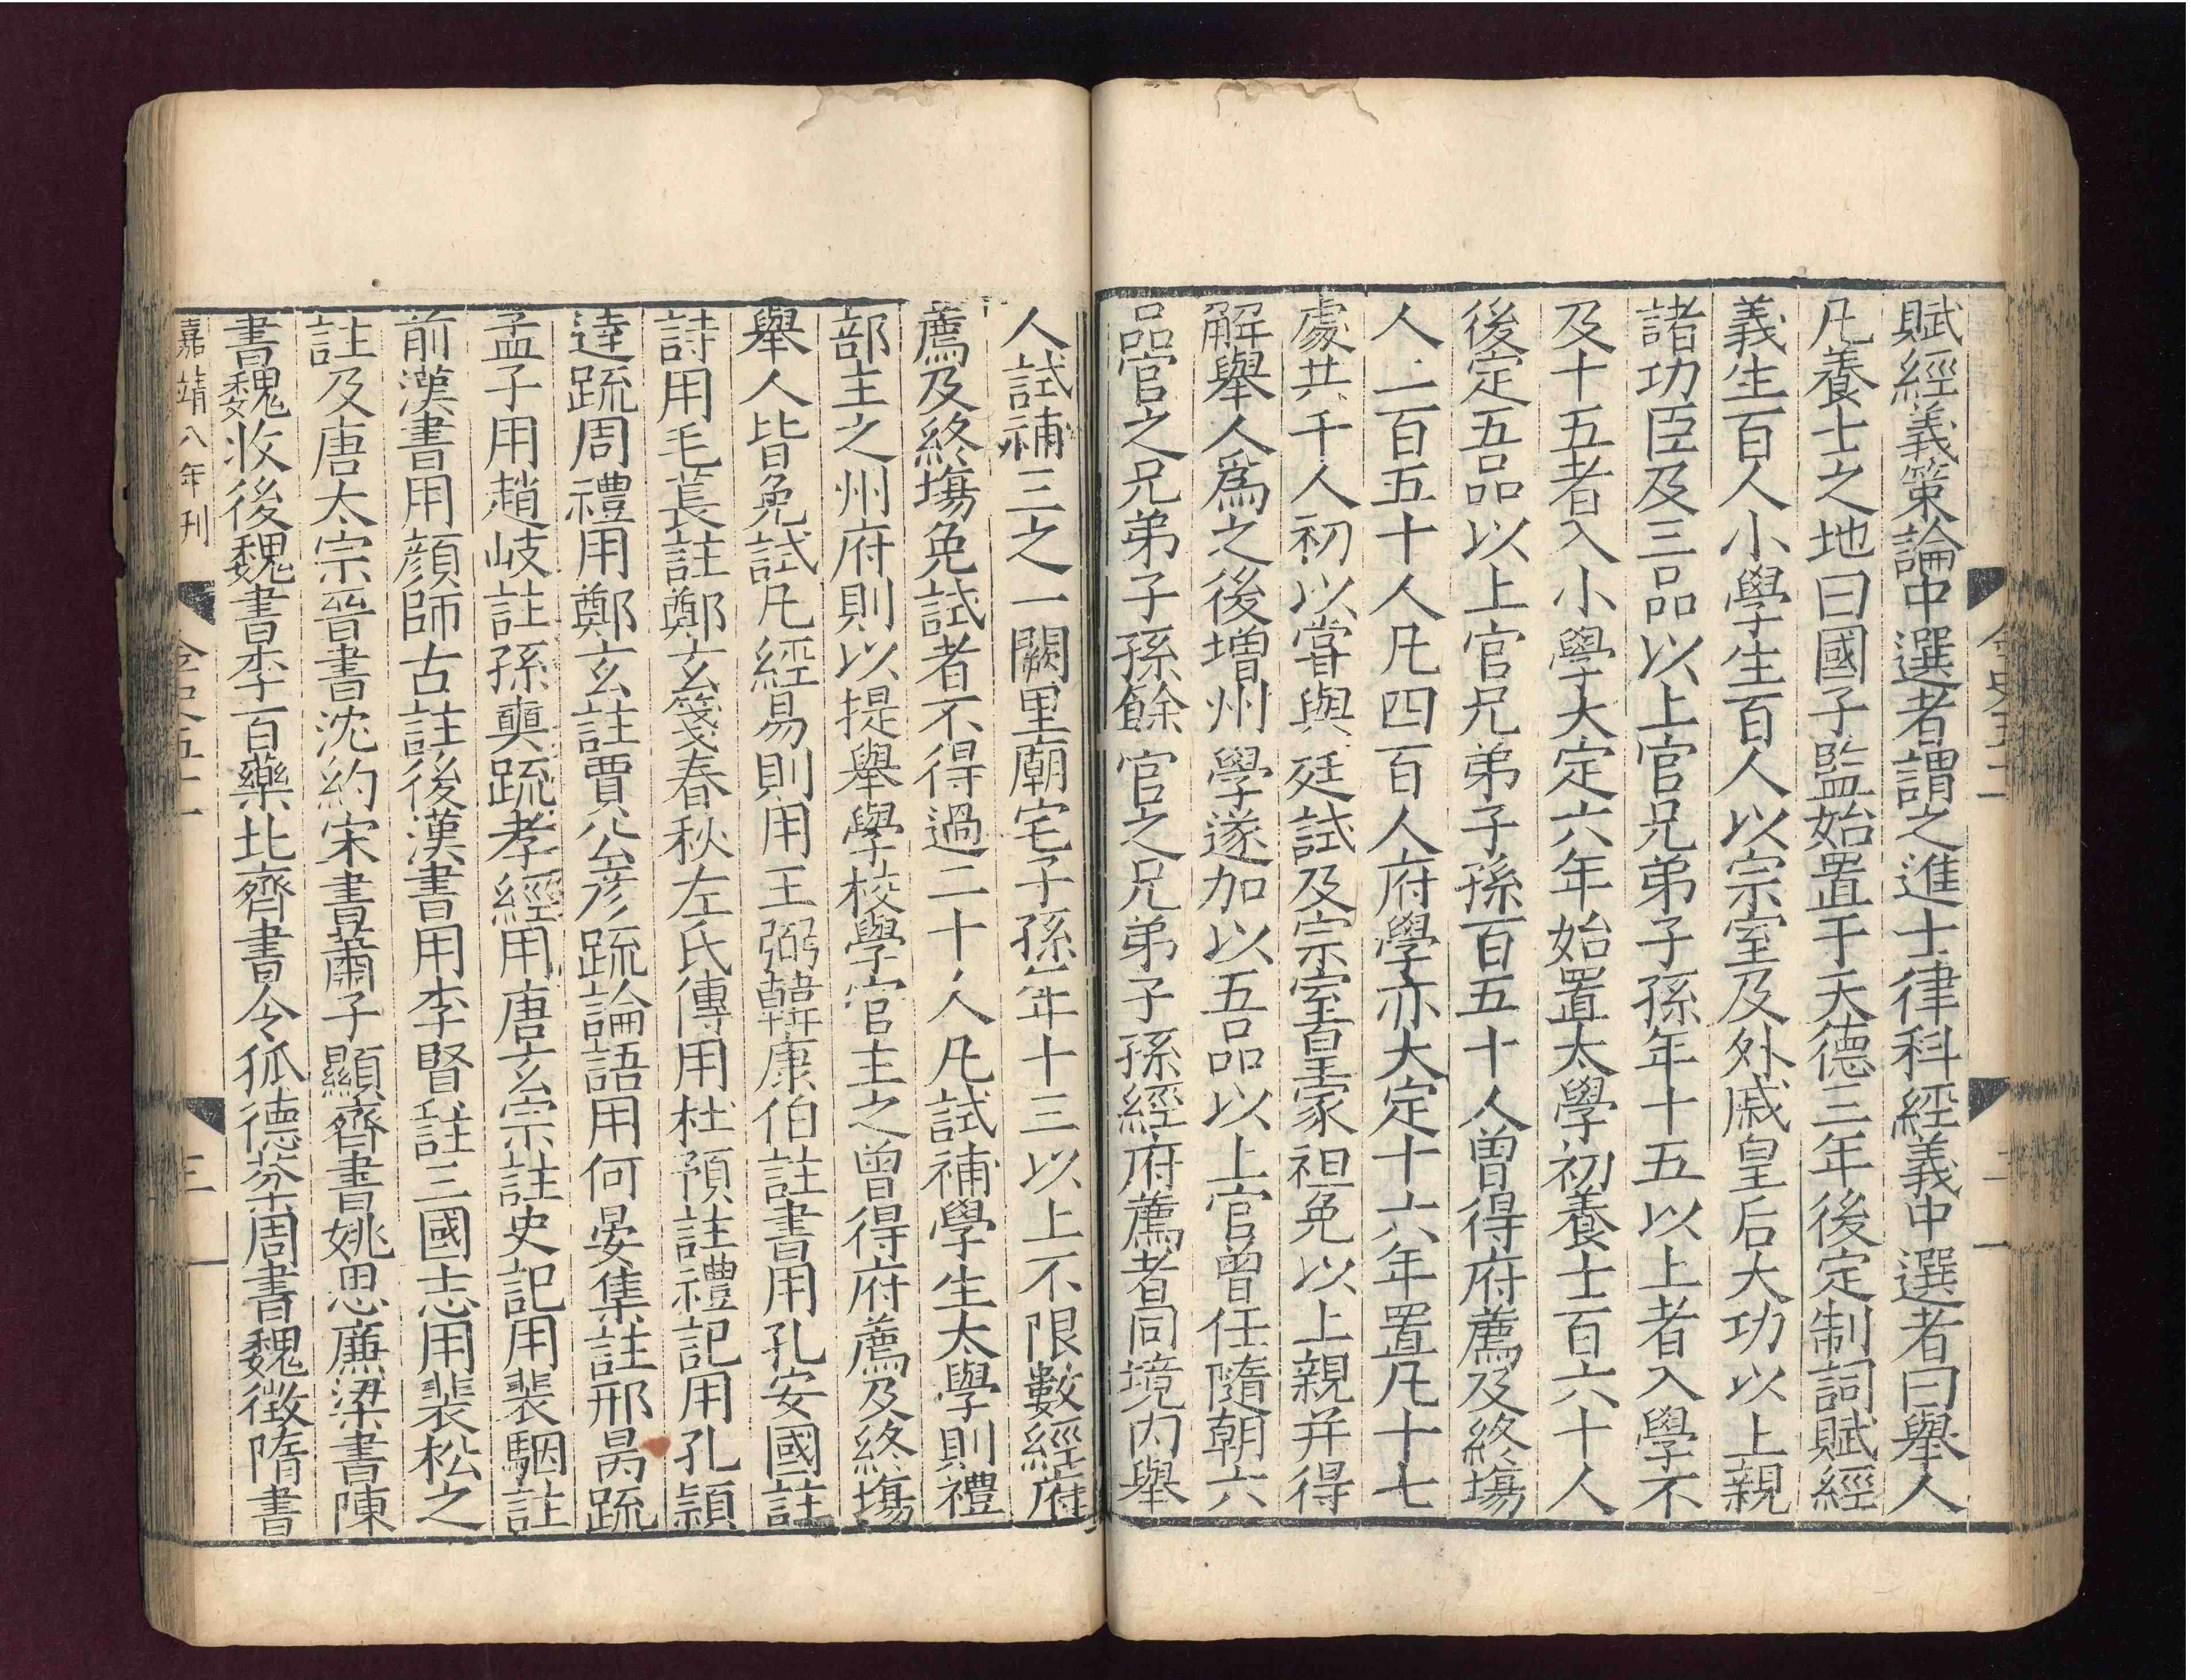 賦經義策論中選者謂之進士律科經義中選者曰舉人
凡養士之地曰國子監始置于天德三年後定制詞賦經
義生百人小學生百人以宗室及外戚皇后大功以上親
諸功臣及三品以上官兄弟子孫年十五以上者入學不
及十五者入小學大定六年始置太學初養士百六十人
後定五品以上官兄弟子孫百五十人曾得府薦及終塲
人二百五十人凡四百人府學亦大定十六年置凡十七
處共千人初以嘗與廷試及宗室皇家袒免以上親并得
解舉人爲之後增州學遂加以五品以上官曾任隨朝六
品官之兄弟子孫餘官之兄弟子孫經府薦者同境内舉
人試補三之一闕里廟宅子孫年十三以上不限數經府
薦及終塲免試者不得過二十人凡試補學生太學則禮
部主之州府則以提舉學校學官主之曾得府薦及終塲
舉人皆免試凡經易則用王弼韓康伯註書用孔安國註
詩用毛萇註鄭玄箋春秋左氏傳用杜預註禮記用孔穎
達疏周禮用鄭玄註賈公彦疏論語用何晏集註邢昺疏
孟子用趙岐註孫奭疏孝經用唐玄宗註史記用裴駰註
前漢書用顔師古註後漢書用李賢註三國志用裴松之
註及唐太宗晉書沈約宋書蕭子顯齊書姚思廉梁書陳
書魏收後魏書李百藥北齊書令狐德棻周書魏徵隋書
嘉靖八年刊
金史五十一
三